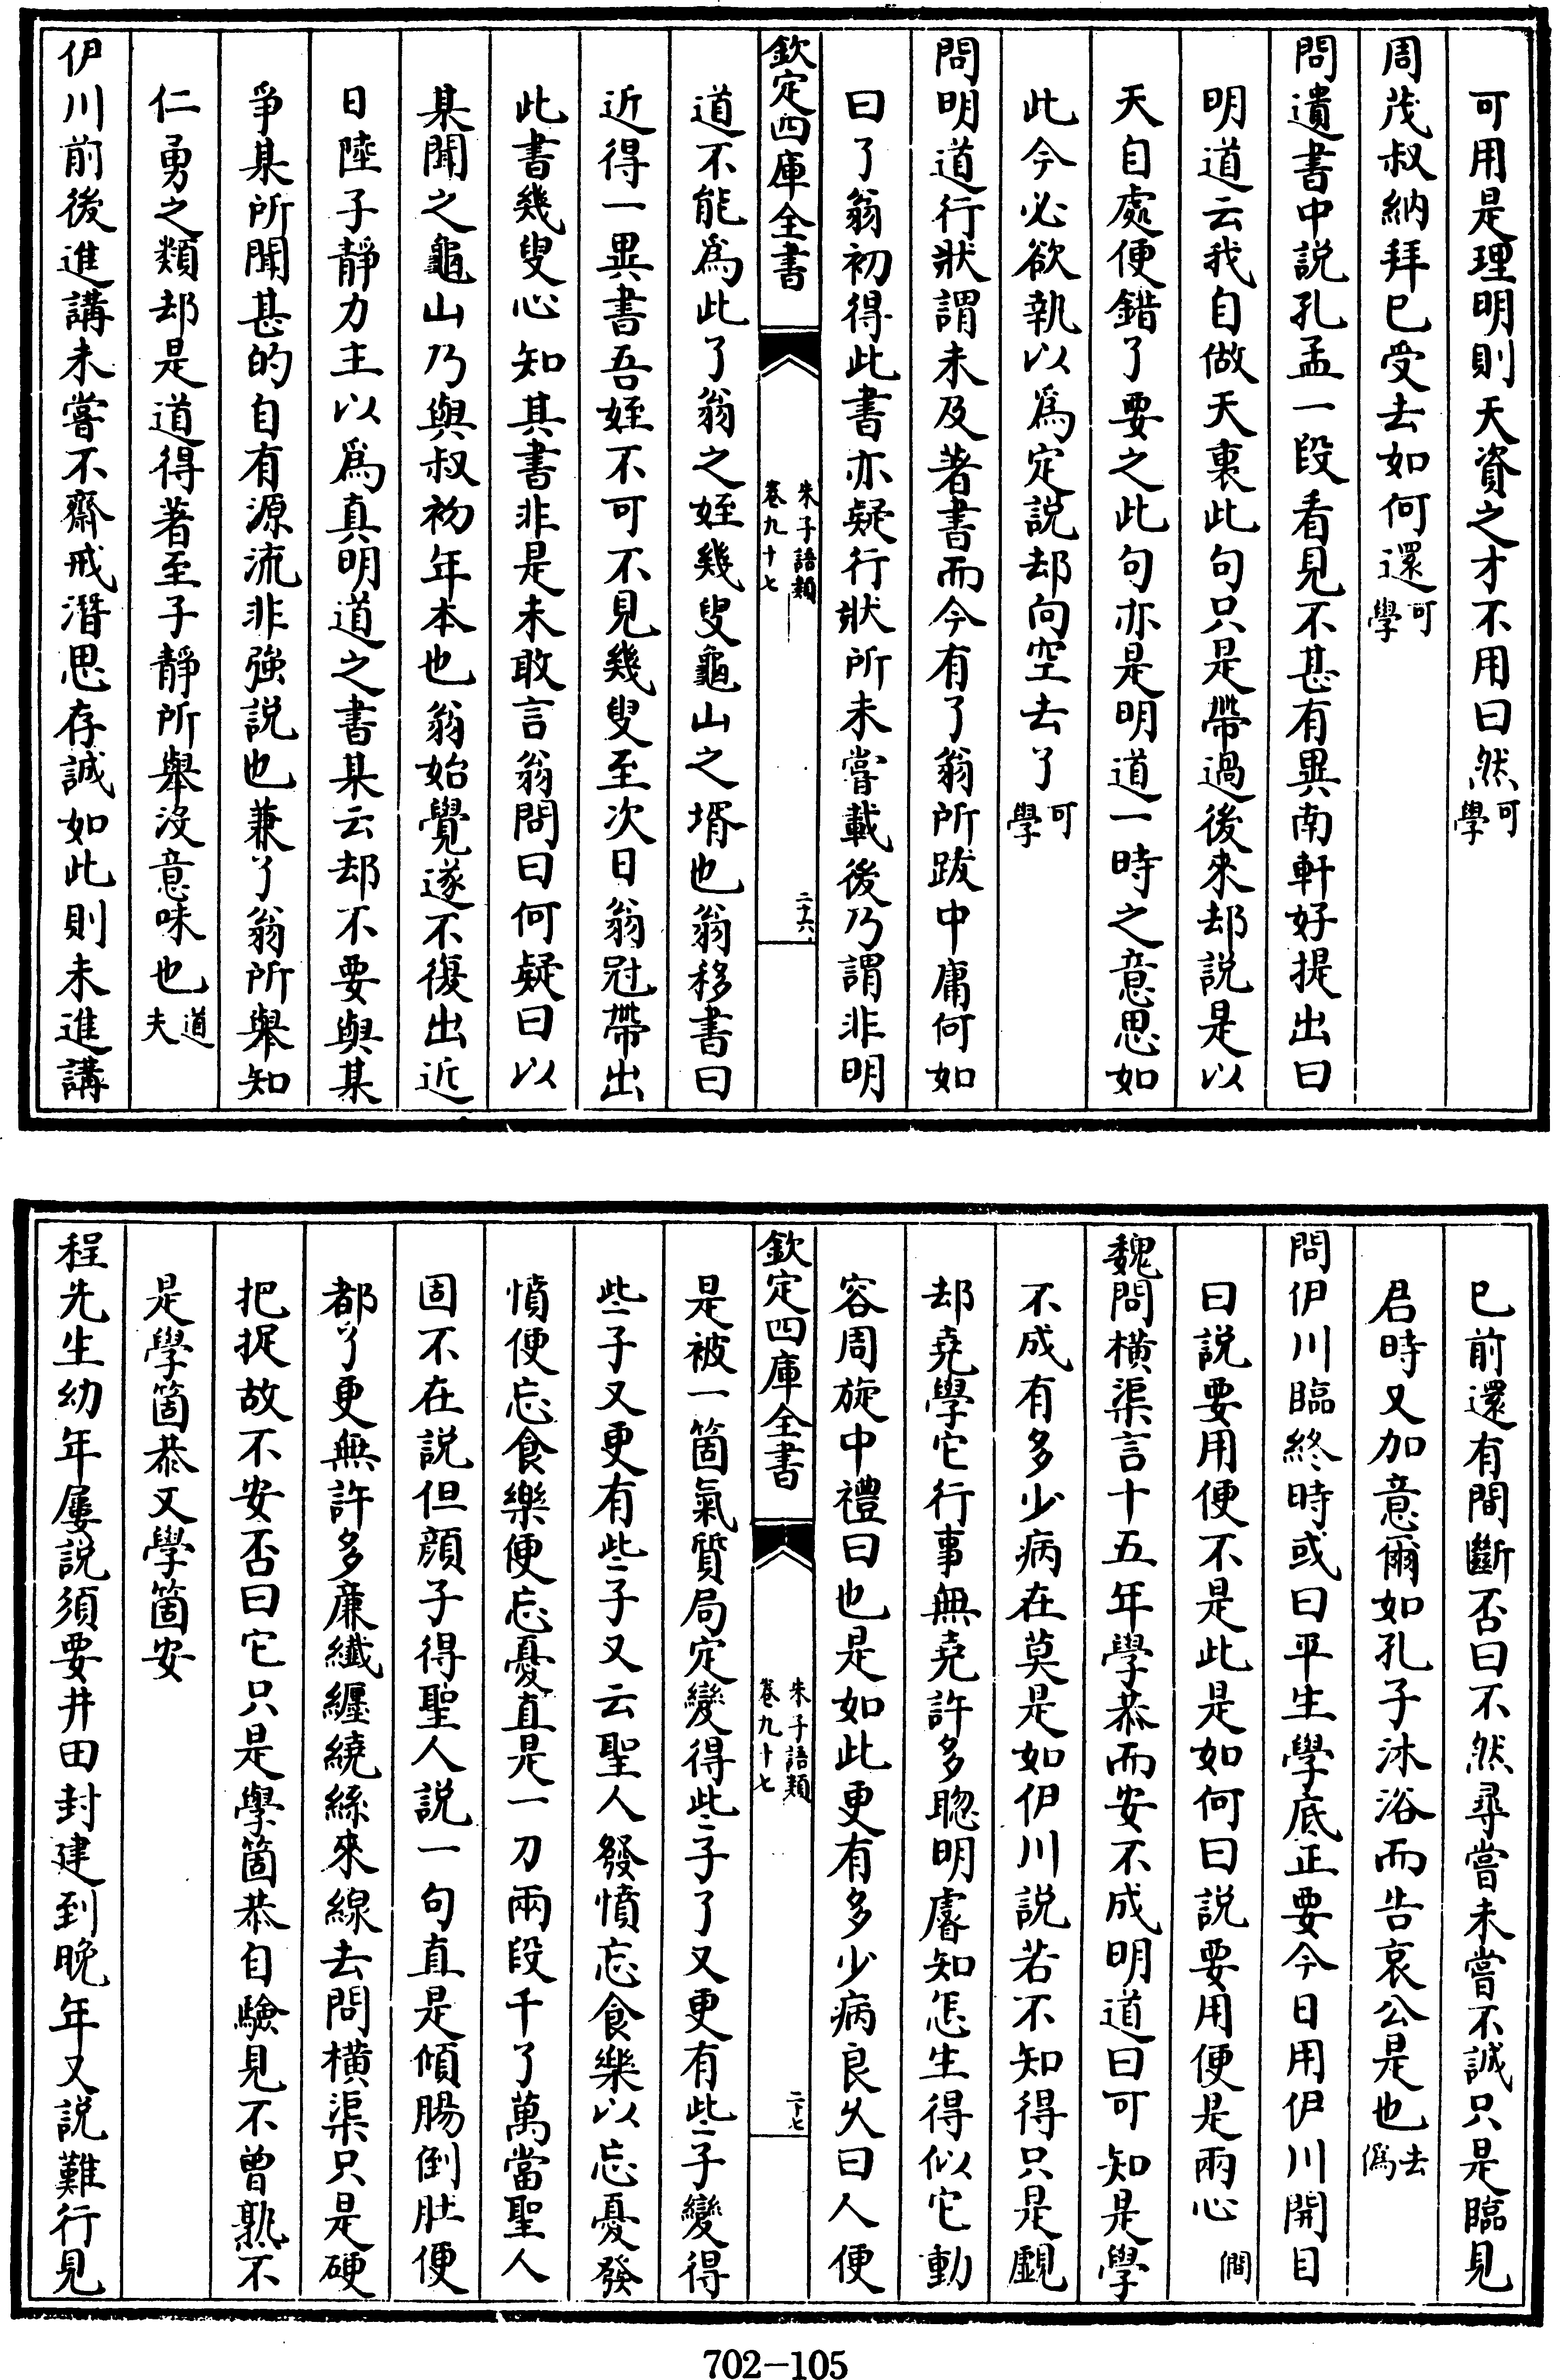 可用是理明則天資之才不用曰然可學
周茂叔納拜已受去如何還可學
問遺書中説孔孟一段看見不甚有異南軒好提出曰
明道云我自做天裏此句只是帶過後來却説是以
天自處便錯了要之此句亦是明道一時之意思如
此今必欲執以爲定説却向空去了可學
問明道行狀謂未及著書而今有了翁所跋中庸何如
曰了翁初得此書亦疑行狀所未嘗載後乃謂非明
欽定四庫全書
朱子語類
卷九十七
二十六
道不能爲此了翁之姪幾叟龜山之壻也翁移書曰
近得一異書吾姪不可不見幾叟至次日翁冠帶出
此書幾叟心知其書非是未敢言翁問曰何疑曰以
某聞之龜山乃與叔初年本也翁始覺遂不復出近
日陸子靜力主以爲真明道之書某云却不要與某
爭某所聞甚的自有源流非強説也兼了翁所舉知
仁勇之類却是道得著至子靜所舉没意味也道夫
伊川前後進講未嘗不齋戒潛思存誠如此則未進講
已前還有間斷否曰不然尋嘗未嘗不誠只是臨見
君時又加意爾如孔子沐浴而告哀公是也去僞
問伊川臨終時或曰平生學底正要今日用伊川開目
曰説要用便不是此是如何曰説要用便是兩心僩
魏問横渠言十五年學恭而安不成明道曰可知是學
不成有多少病在莫是如伊川説若不知得只是覷
却堯學它行事無堯許多聰明睿知怎生得似它動
容周旋中禮曰也是如此更有多少病良久曰人便
欽定四庫全書
朱子語類
卷九十七
二十七
是被一箇氣質局定變得些子了又更有些子變得
些子又更有些子又云聖人發憤忘食樂以忘憂發
憤便忘食樂便忘憂直是一刀兩段千了萬當聖人
固不在説但顔子得聖人説一句直是傾腸倒肚便
都了更無許多廉纖纒繞絲來線去問横渠只是硬
把捉故不安否曰它只是學箇恭自驗見不曾熟不
是學箇恭又學箇安
程先生幼年屢説須要井田封建到晚年又説難行見
702-105